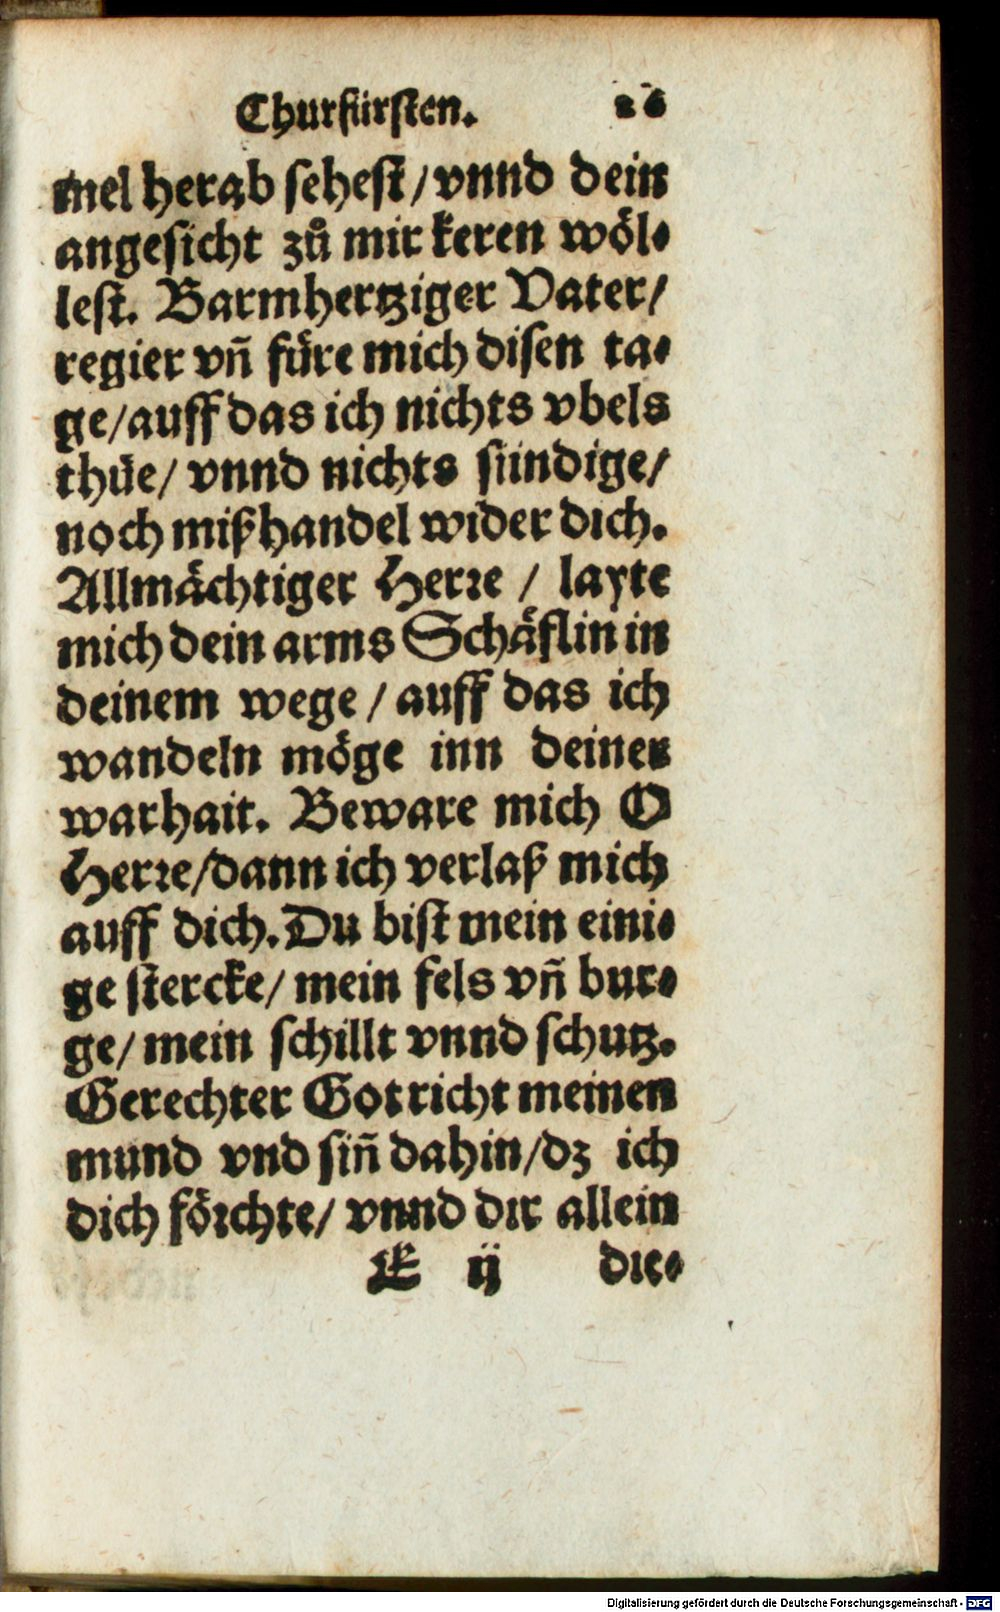 Churfürsten. 26
mel herab sehest / vnnd dein
angesicht zů mir keren wöl⸗
lest. Barmhertziger Vater /
regier vñ füre mich disen ta⸗
ge / auff das ich nichts vbels
thüe / vnnd nichts sündige /
noch mißhandel wider dich.
Allmächtiger Herre / layte
mich dein arms Schäflin in
deinem wege / auff das ich
wandeln möge inn deiner
warhait. Beware mich O
Herre / dann ich verlaß mich
auff dich. Du bist mein eini⸗
ge stercke / mein fels vñ bur⸗
ge / mein schillt vnnd schutz.
Gerechter Got richt meinen
mund vnd siñ dahin / dz ich
dich förchte / vnnd dir allein
E ij die⸗
Digitalisierung gefördert durch die Deutsche Forschungsgemeinschaft - DFG